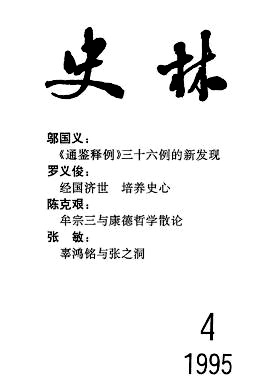 史林
邬国义：
《通鉴释例》三十六例的新发现
罗义俊：
经国济世 培养史心
陈克艰：
牟宗三与康德哲学散论
张 敏：
辜鸿铭与张之洞
4
1995